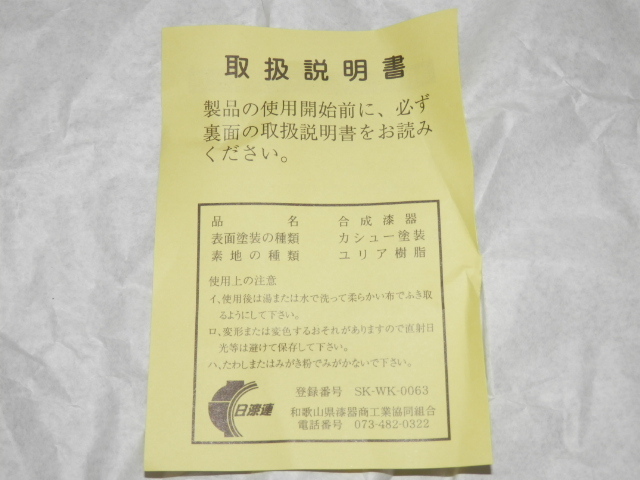 取扱説明書
製品の使用開始前に、必ず
裏面の取扱説明書をお読み
ください。
品名 合成漆器
表面塗装の種類 カシュー塗装
素地の種類 ユリア樹脂
使用上の注意
イ、使用後は湯または水で洗って柔らかい布でふき取
るようにして下さい。
ロ、変形または変色するおそれがありますので直射日
光等は避けて保存して下さい。
ハ、たわしまたはみがき粉でみがかないで下さい。
日漆連
登録番号 SK-WK-0063
和歌山県漆器商工業協同組合
電話番号 073-482-0322